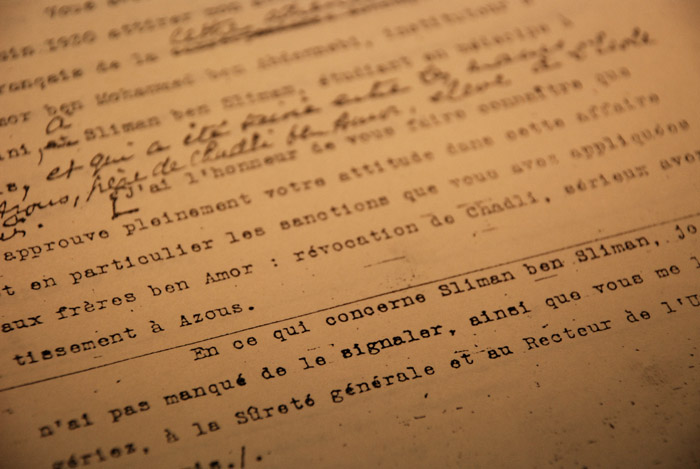 Vous
uin 1930 attirer
rançais de la lettre
mor ben Mohammed ben Abdennebi, instituteur
ni, à Sliman ben Sliman, étudiant en
s, et qui a été saisie entre les mains de
Azous, frère de Chadli ben Amor, élève de l'école
J'ai l'honneur de vous faire connaître que
approuve pleinement votre attitude dans cette affaire
t en particulier les sanctions que vous avez appliquées
aux frères ben Amor : révocation de Chadli, sérieux aver
tissement à Azous.
En ce qui concerne Sliman ben Sliman, je
n'ai pas manqué de le signaler, ainsi que vous me l
gériez, à la Sûreté générale et au Recteur de l'U
is./.